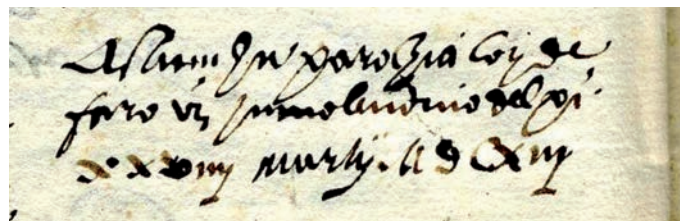 Actum In parochia loci de
faro vz In molendino del pi.
xxviiij martij. ad xiij